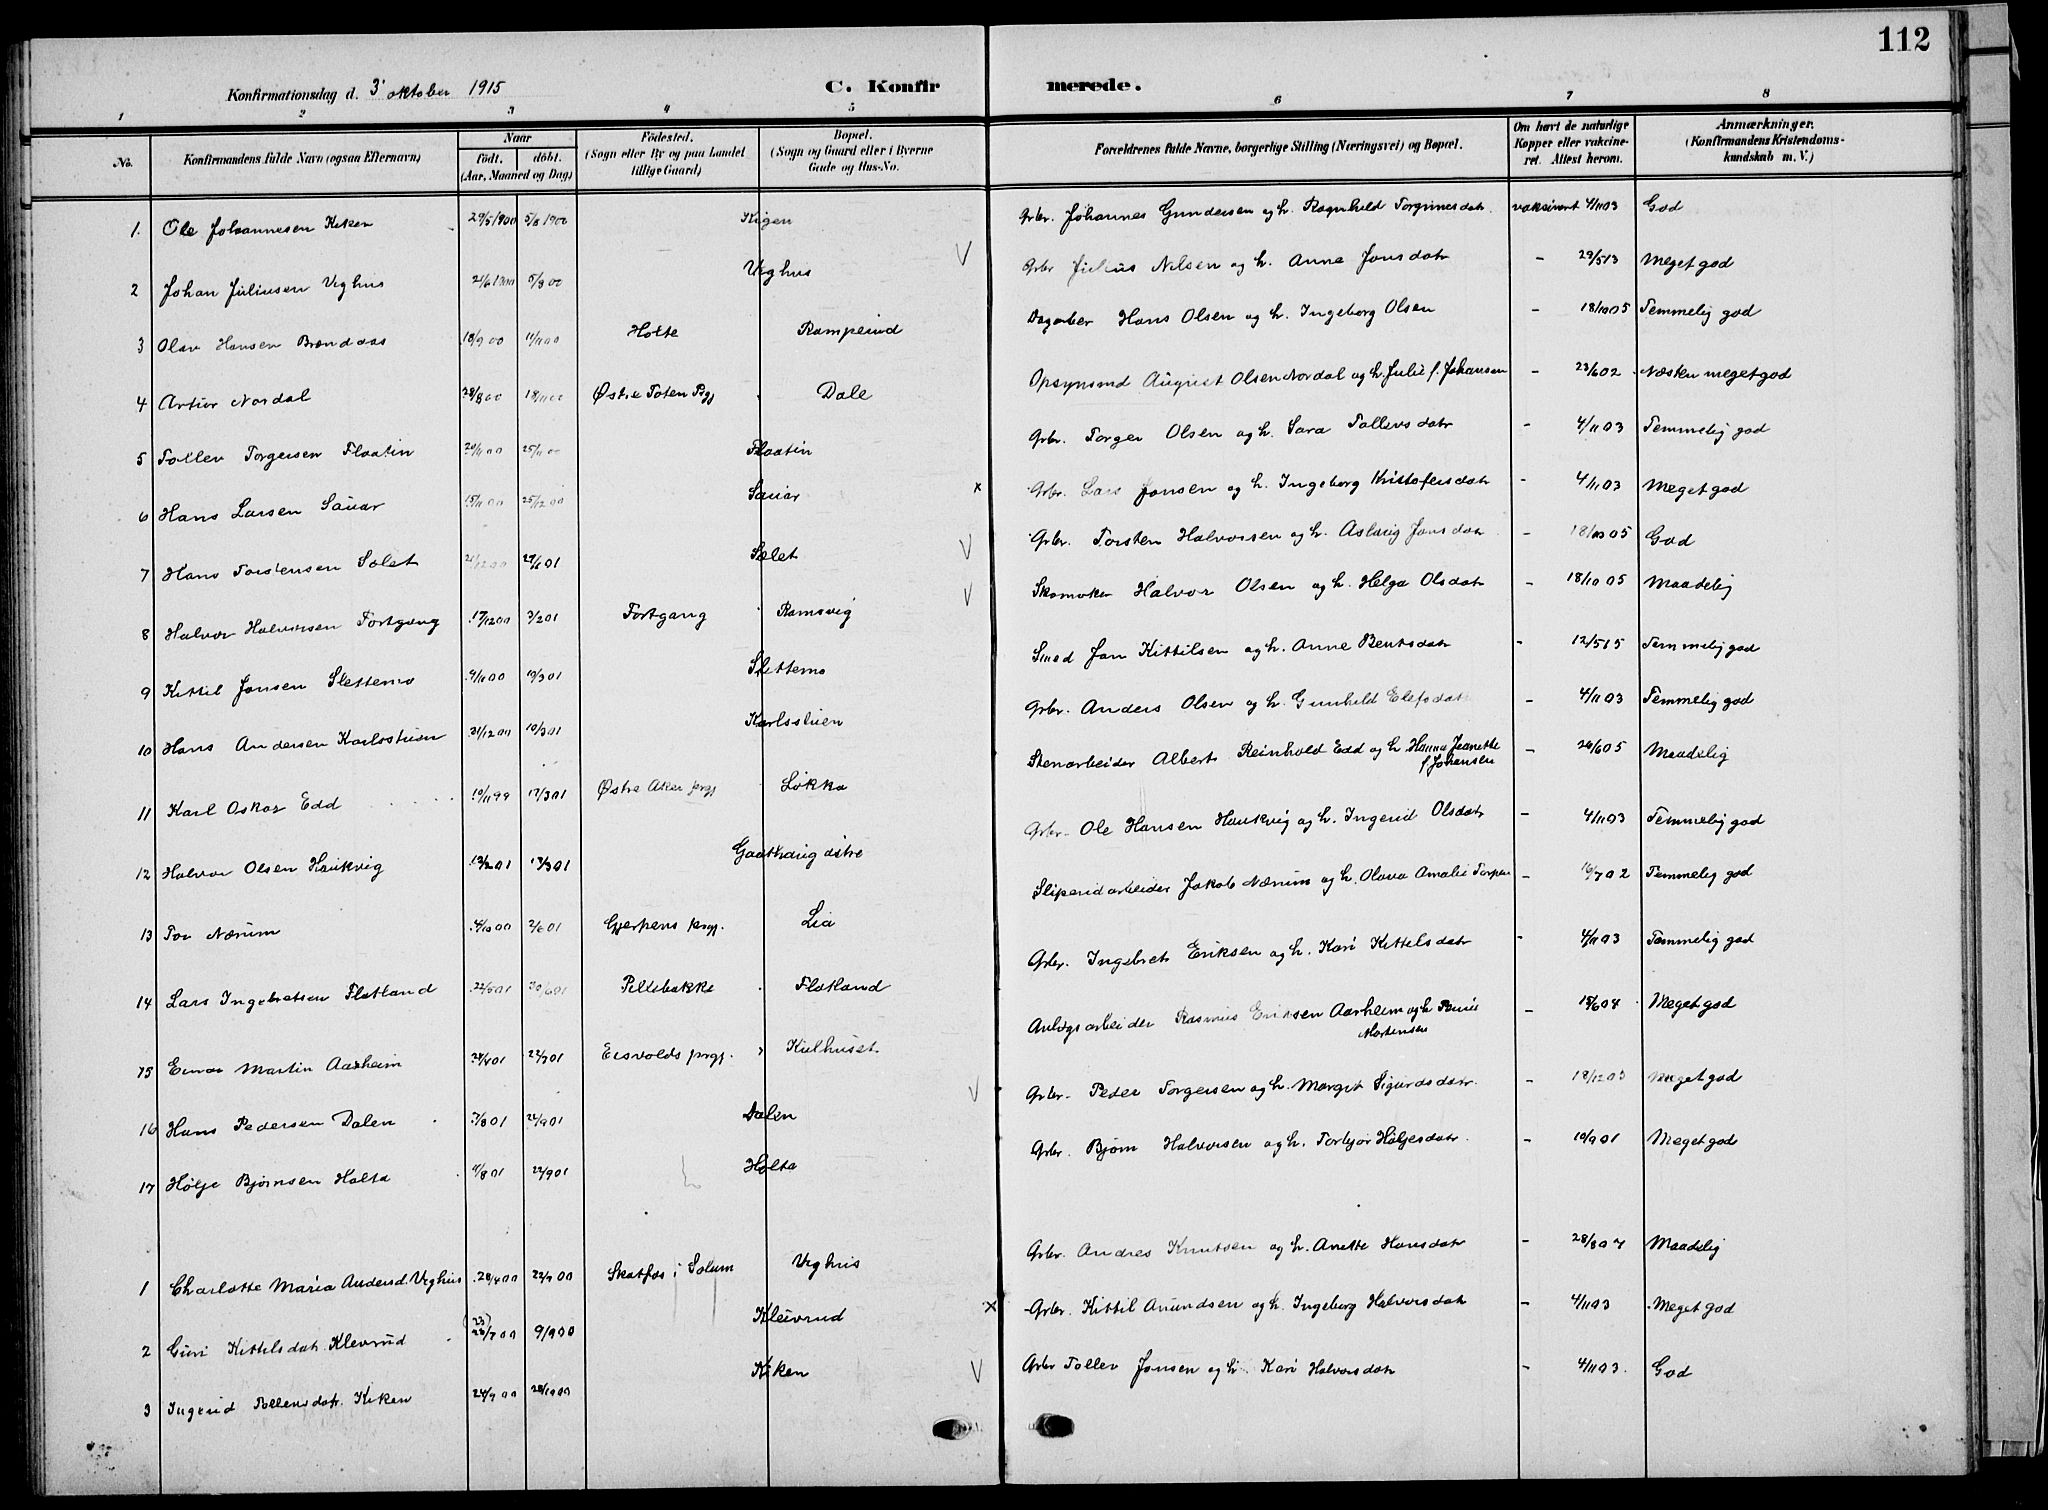 112
Konfirmationsdag d. 3' oktober 1915
C. Konfirmerede.
1 2 3 4 5 6 7 8
No.
Konfirmandens fulde Navn (ogsaa Efternavn)
Naar
födt. döbt.
(Aar, Maaned og Dag)
Födested.
(Sogn eller By og paa Landet
tillige Gaard)
Bopæl.
(Sogn og Gaard eller i Byerne
Gade og Hus-No.
Forældrenes fulde Navne, borgerlige Stilling (Næringsvei) og Bopæl.
Om havt de naturlige
Kopper eller vakcine-
ret. Attest herom.
Anmærkninger.
(Konfirmandens Kristendoms-
kundskab m. V.)
1. Ole Johannesen Keken 29/5 1900 5/8 1900 Grbr. Johannes Gundersen og h. Ragnhild Torgrimsdatr. vaksinert 4/1103 God
2 Johan Juliusen Veghus 21/6 1900 5/8 00 Veghus Grbr Julius Nilsen og h. Anne Jonsdatr - 29/513 Meget god
3 Olav Hansen Brændaas 18/9 00 11/11 00 Holte Ramperud Dagarber Hans Olsen og h. Ingeborg Olsen - 18/1005 Temmelig god
4 Artur Nordal 28/8 00 18/11 00 Østre Toten Pgj Dale Opsynsmd August Olsen Nordal og h. Julie f. Johansen - 23/602 Næsten meget god
5 Tollev Torgersen Flaatin 25/11 00 Flaatin Grbr. Torger Olsen og h. Sara Tollevsdatr - 4/1103 Temmelig god
6 Hans Larsen Sauar 15/11 00 25/12 00 Sauar x Grbr. Lars Jonsen og h. Ingeborg Kristofersdatr - 4/1103 Meget god
7 Hans Torstensen Solet 21/12 00 Solet Grbr. Torsten Halvorsen og h. Aslaug Jonsdatr - 18/1005 God
8 Halvor Halvorsen Fortgang 17/12 00 3/2 01 Fortgang Ramsvig Skomaker Halvor Olsen og h. Helga Olsdatr - 18/10 05 Maadelig
9 Kittil Jonsen Slettemo 4/11 00 10/3 01 Slettemo Smed Jon Kittilsen og h. Anne Bentsdatr - 12/515 Temmelig god
10 Hans Andersen Karlsstuen 31/12 00 10/3 01 Karlsstuen Grbr. Anders Olsen og h. Gunhild Elefsdatr - 4/1103 Temmelig god
11 Karl Oskar Edd 10/11 99 17/3 01 Østre Aker prgj Løkka Stenarbeider Albert Reinhold Edd og h. Hanna Jeanette f Johansen - 24/605 Maadelig
12 Halvor Olsen Haukvig 17/3 01 Gaathaug østre Grbr. Ole Hansen Haukvig og h. Ingerid Olsdatr - 4/1103 Temmelig god
13 Tor Nærum 4/10 00 2/6 01 Gjerpens prgj. Lia Sliperiarbeider Jakob Nærum og h. Olava Amalie - 16/702 Temmelig god
14 Lars Ingebretsen Flatland 22/5 01 30/6 01 Pellebakke Flatland Grbr. Ingebret Eriksen og h. Kari Kittelsdatr - 4/1103 Temmelig god
15 Einar Martin Aarheim 24/4 01 Eisvolds prgj. Kulhuset Anlægsarbeider Rasmus Eriksen Aarheim og h. Mortensen - 15/604 Meget god
16 Hans Pedersen Dalen 7/8 01 22/9 01 Dalen Grbr. Peder Torgersen og h. Margit Sigurdsdatr. - 18/1203 Meget god
17 Hølje Bjørnsen Holta 4/8 01 22/9 01 Holta Grbr. Bjørn Halvorsen og h. Torbjør Høljesdatr. - 10/901 Meget god
1 Charlotte Maria Andersd. Veghus 28/4 00 22/7 00 Skotfos i Solum Veghus Grbr. Andres Knutsen og h. Anette Hansdatr - 28/807 Maadelig
2 Guri Kittilsdatr. Klevrud (23) 9/9 00 Kleivrud x Grbr. Kittil Anundsen og h. Ingeborg Halvorsdatr - 4/1103 Meget god
3 Ingerid Tollevsdatr. Keken 24/9 00 28/10 00 Keken Grbr Tollev Jonsen og h. Kari Halvorsdatr - 4/1103. God